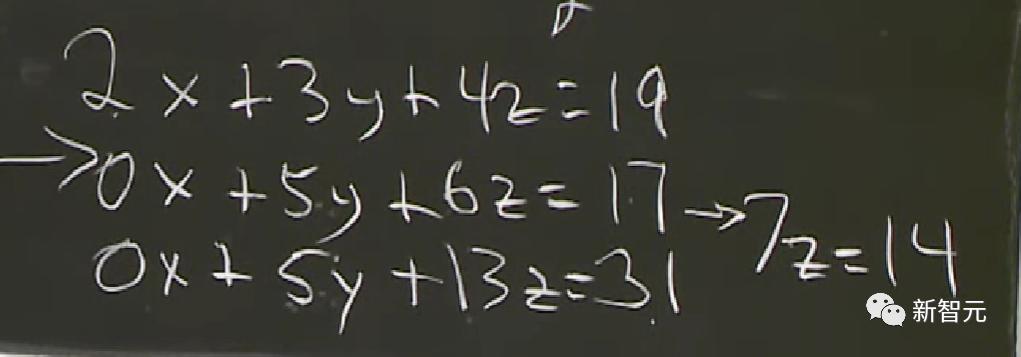 2x+3y+4z=19
→0x+5y+6z=17→7z=14
0x+5y+13z=31
新智元